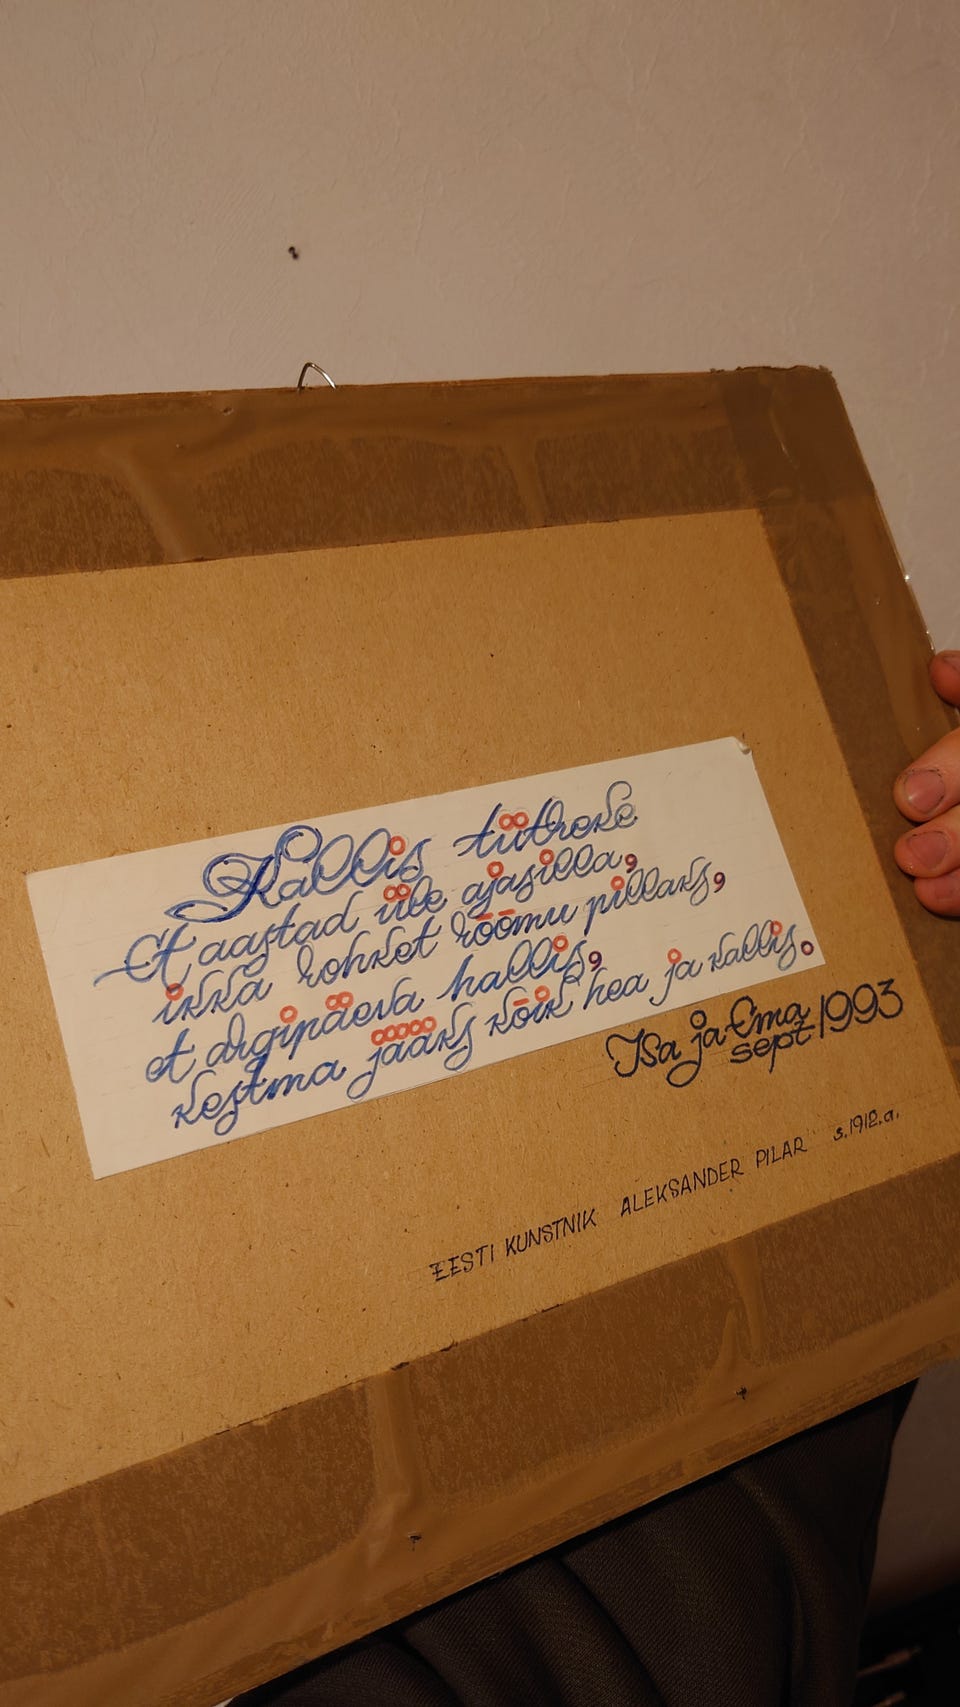 Kallis tütreke
Et aastad üle ajasilla,
ikka rohket rõõmu pillaks,
et argipäeva hallis,
kestma jääks kõik hea ja kallis.
Isa ja Ema
sept 1993
EESTI KUNSTNIK ALEKSANDER PILAR s.1912.a.